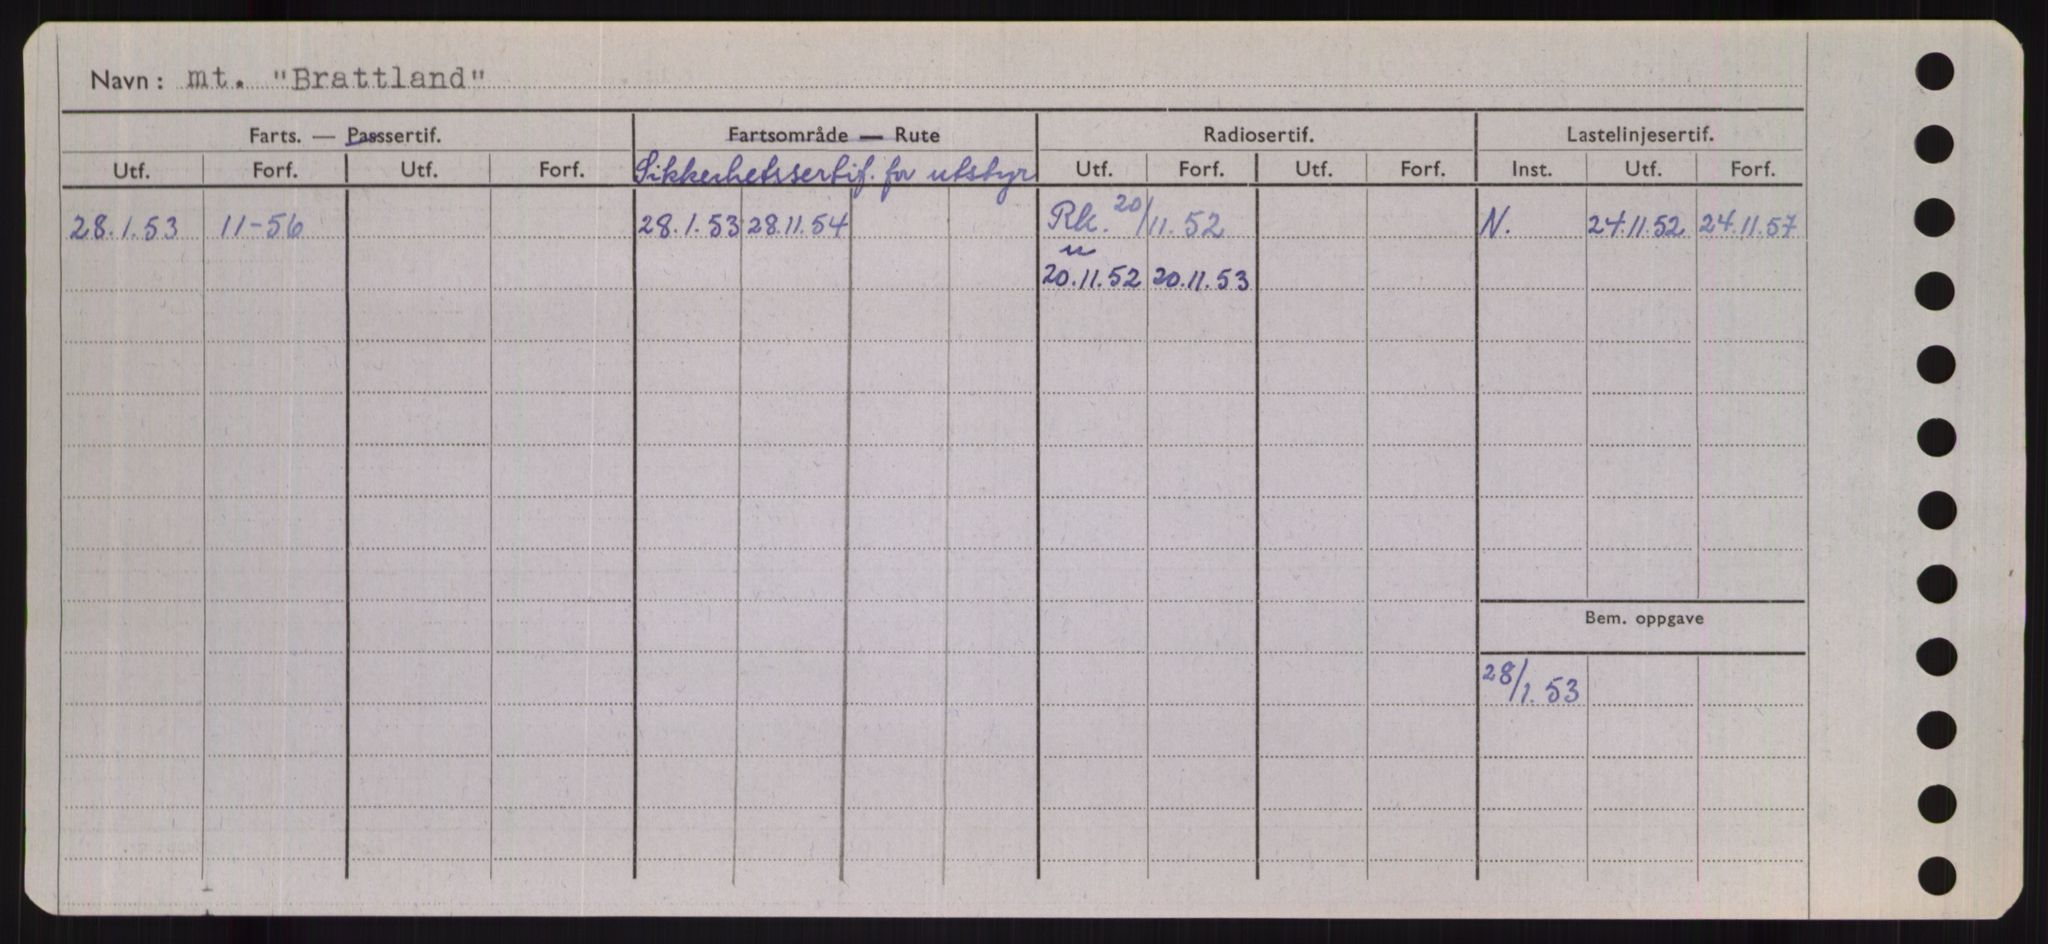 Navn: mt. "Brattland"
Farts. — Passsertif. Fartsområde — Rute Radiosertif. Lastelinjesertif.
Utf. Forf. Utf. Forf. Sikkerhetssertif. for utstyr Utf. Forf. Utf. Forf. Inst. Utf. Forf.
28.1.53 11-56 28.1.53 28.11.54 Rk. 20/11.52 N. 24.11.52 24.11.57
n
20.11.52 20.11.53
Bem. oppgave
28/1.53